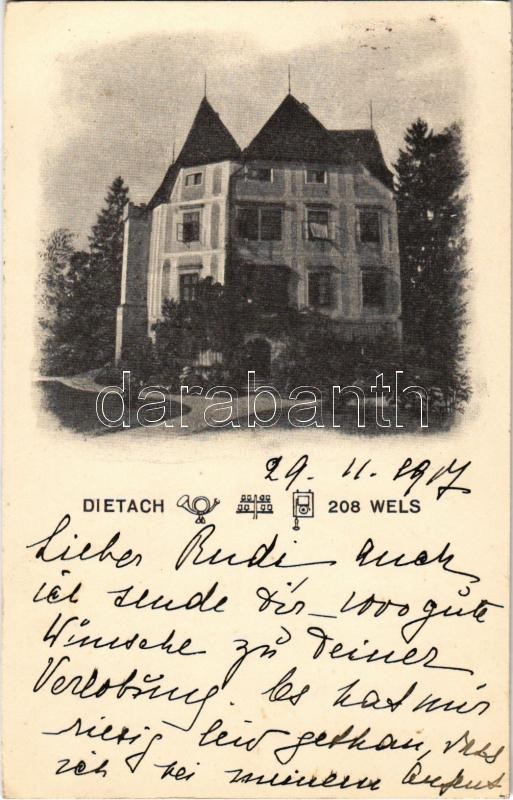 darabanth
29. 11. 1917
DIETACH 208 WELS
Lieber Rudi Auch
ich sende Dir 1000 gute
Wünsche zu Deiner
Verlobung. Es hat mir
riesig leid gethan, dass
ich bei meinem